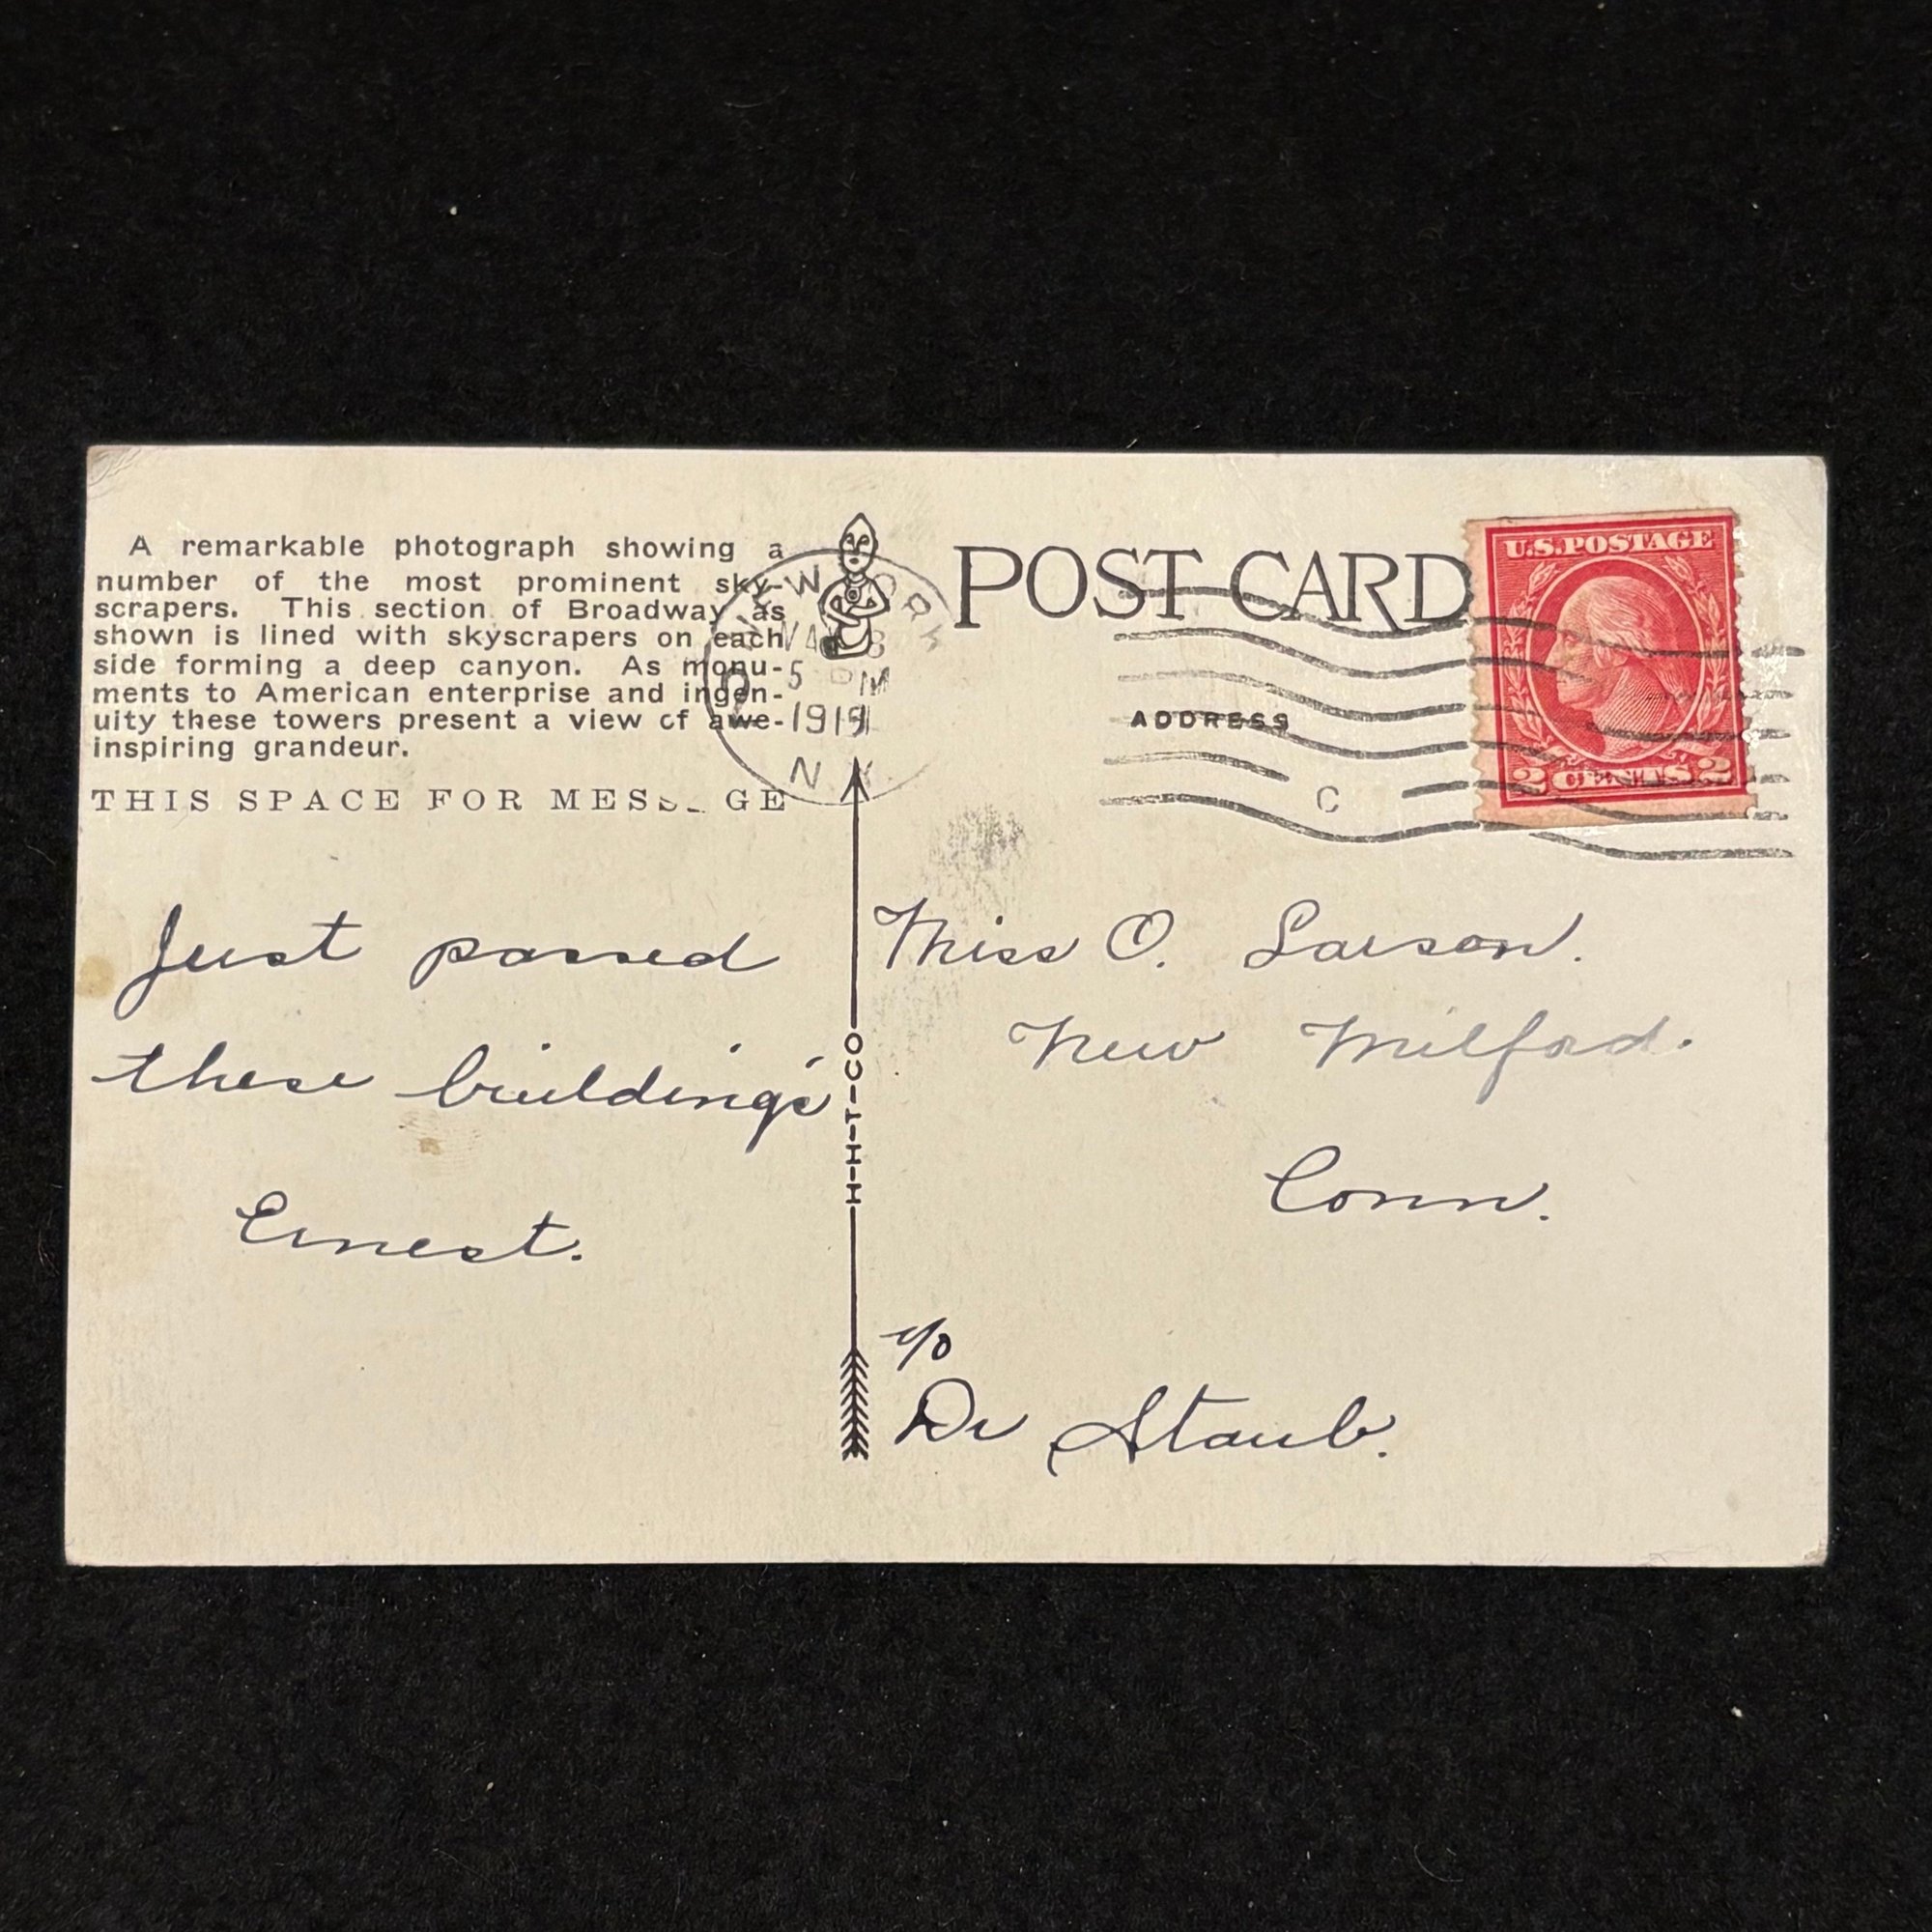 A remarkable photograph showing a
number of the most prominent sky-
scrapers. This section of Broadway as
shown is lined with skyscrapers on each
side forming a deep canyon. As monu-
ments to American enterprise and ingen-
uity these towers present a view of awe-
inspiring grandeur.
THIS SPACE FOR MESS GE
Just passed
these buildings
Ernest.
NEW YORK
5 PM
1919
N.Y.
H-H-T-CO
POST CARD
ADDRESS
C
U.S.POSTAGE
2 CENTS 2
Miss O. Larson.
New Milford.
Conn.
c/o
Dr Staub.